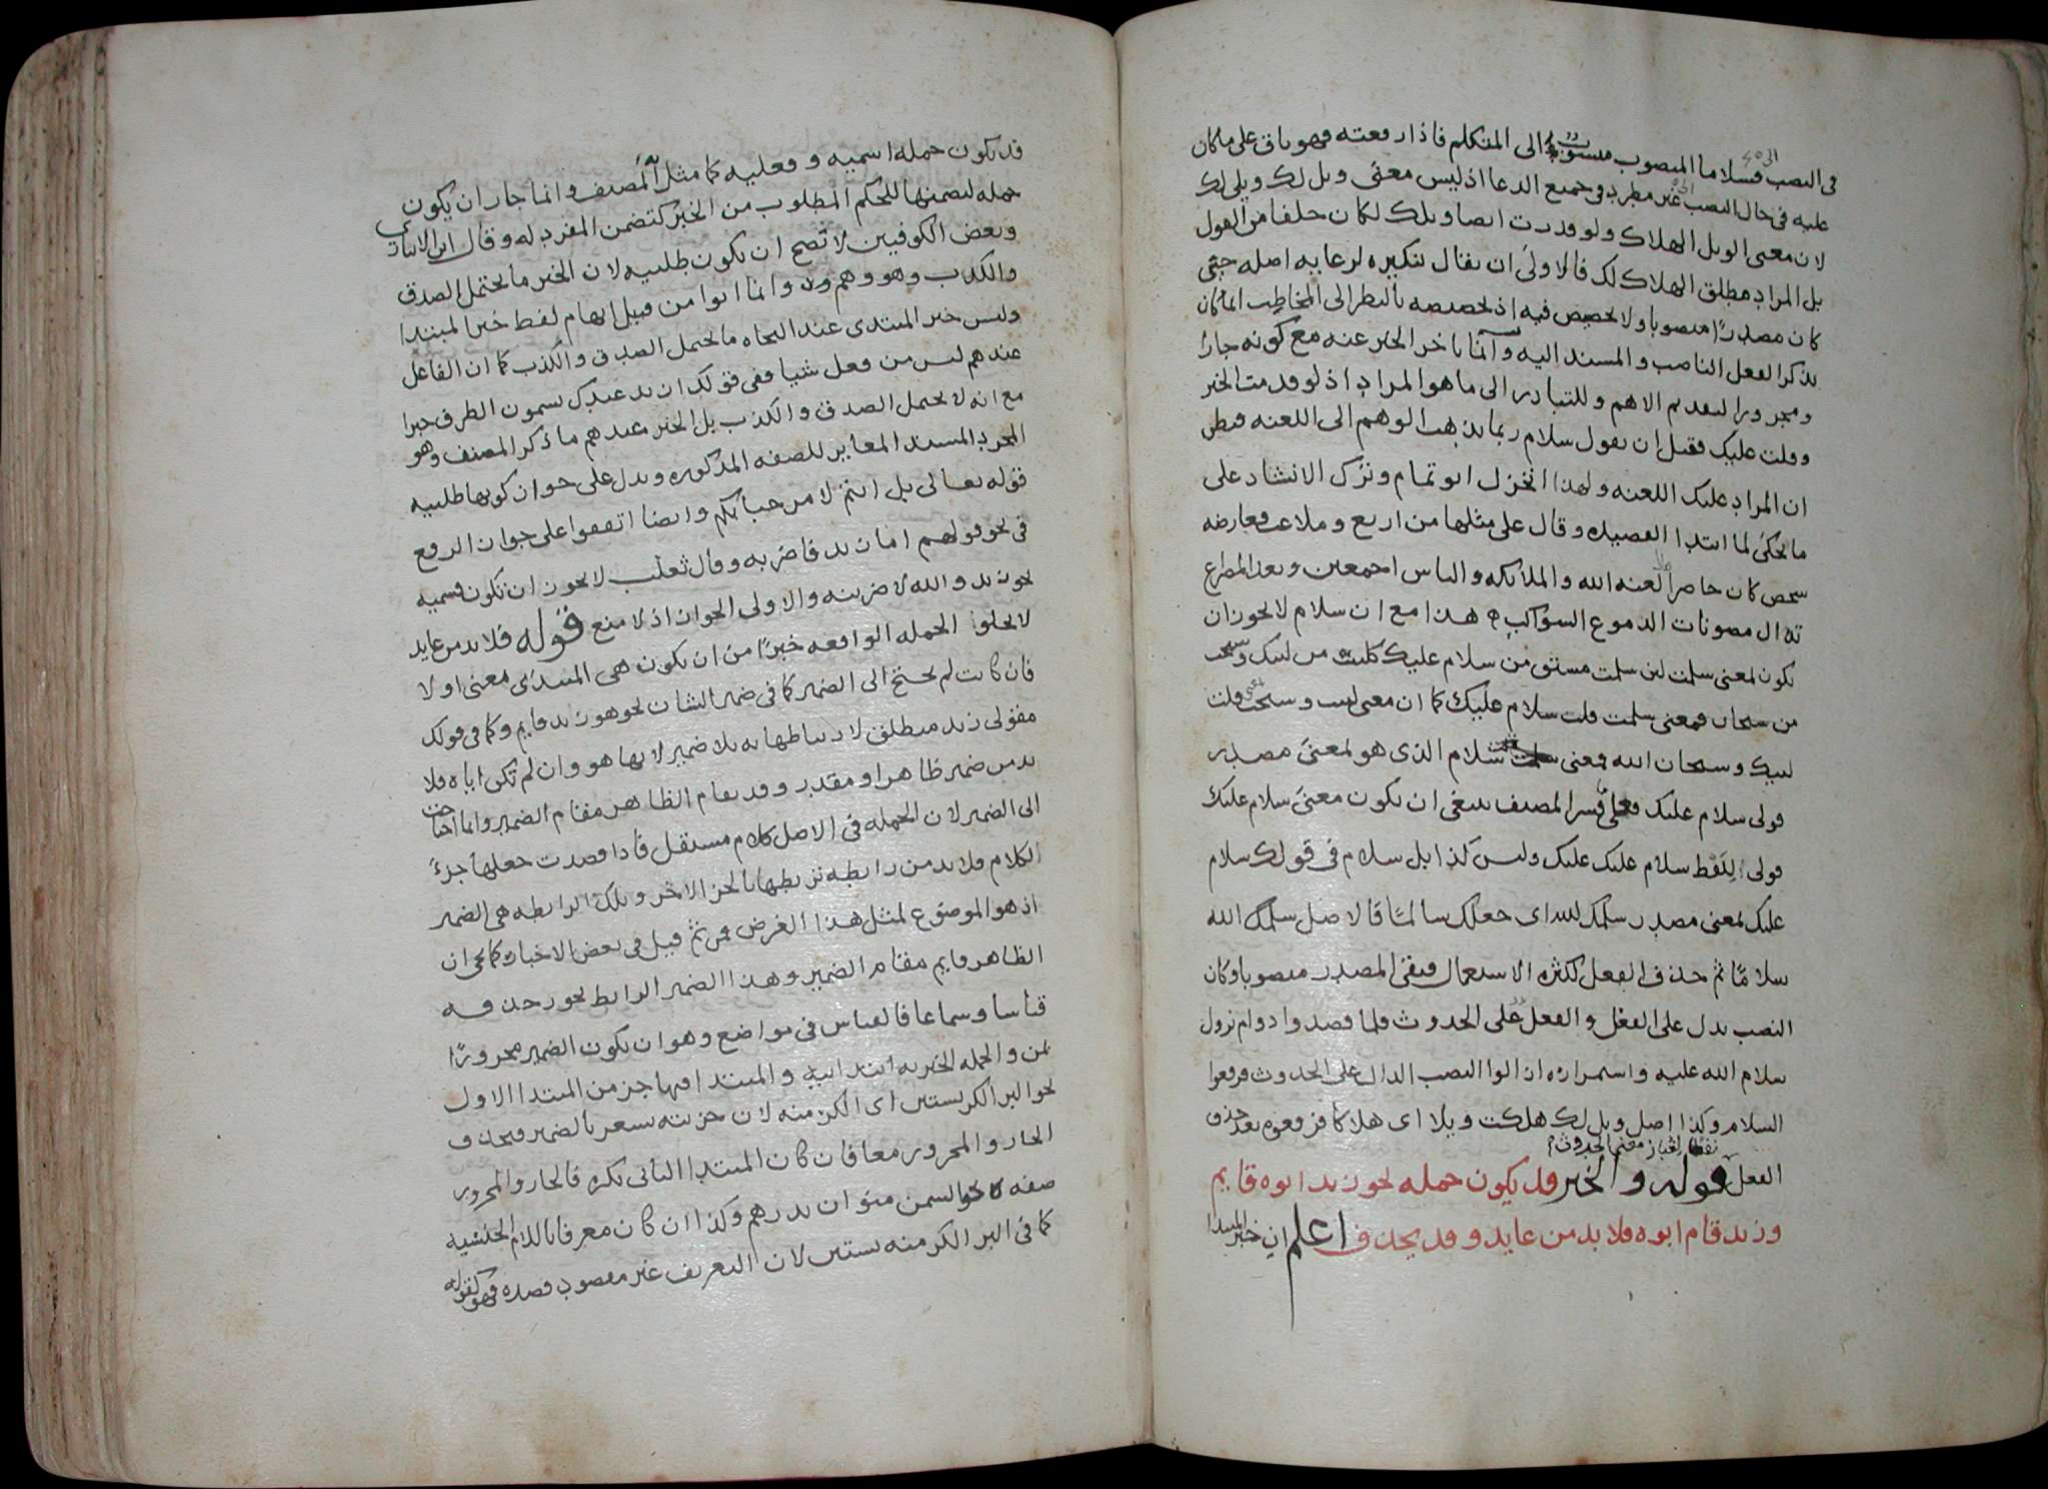 في النصب فسلاما المنصوب منسوب الى المتكلم فاذا رفعته فهو باق على ما كان
عليه في حال النصب غير مطرد في جميع الدعا اذ ليس معنى ويل لك ويلي لك
لان معنى الويل الهلاك ولو قدرت ايضا ويلك لكان خلفا من القول
بل المراد مطلق الهلاك لك فالاولى ان يقال تنكيره لرعاية اصله حيثى
كان مصدرًا منصوبا ولا تخصيص فيه اذ تخصيصه بالنظر الى المخاطب انما كان
بذكر الفعل الناصب والمسند اليه وانما تاخر الخبر عنه مع كونه جارا
ومجرورا لتقديم الاهم وللتبادر الى ما هو المراد اذ لو قدمت الخبر
وقلت عليك فقبل ان يقول سلام ربما يذهب الوهم الى اللعنة فيظن
ان المراد عليك اللعنه ولهذا انخزل ابو تمام وترك الانشاد على
ما يحكى لما ابتدا القصيده وقال على مثلها من اربع وملاعب فعارضه
شخص كان حاضرا لعنه الله والملائكه والناس اجمعين وبعد المصراع
تذال مصونات الدموع السواكب هذا مع ان سلام لا يجوز ان
يكون بمعنى سلمت لان سلمت مشتق من سلام عليك كلبيت من لبيك وسبحت
من سبحان فمعنى سلمت قلت سلام عليك كما ان معنى لبيت وسبحت قلت
لبيك وسبحان الله فمعنى سلام الذي هو بمعنى مصدر
قولي سلام عليك فعلى ما فسر المصنف ينبغي ان يكون معنى سلام عليك
قولى لفظ سلام عليك عليك وليس كذا بل سلام في قولك سلام
عليك بمعنى مصدر سلمك الله اى جعلك سالما فالاصل سلمك الله
سلامًا ثم حذف الفعل لكثره الاستعمال فبقى المصدر منصوبا وكان
النصب يدل على الفعل والفعل على الحدوث فلما قصدوا دوام نزول
سلام الله عليه واستمراره ازالوا النصب الدال على الحدوث فرفعوا
السلام وكذا اصل ويل لك هلكت ويلا اى هلاكا فرفعوه بعد حذف
الفعل نفضا لغبار معنى الحدوث قوله والخبر قد يكون جمله نحو زيد ابوه قايم
وزيد قام ابوه فلا بد من عايد وقد يحذف اعلم ان خبر المبتدا
قد يكون جمله اسميه وفعليه كما مثل المصنف وانما جاز ان يكون
جمله لتضمنها للحكم المطلوب من الخبر كتضمن المفرد له وقال ابن الانباري
وبعض الكوفيين لا تصح ان يكون طلبيه لان الخبر ما يحتمل الصدق
والكذب وهو وهم وانما اتوا من قبل ايهام لفظ خبر المبتدا
وليس خبر المبتدى عند النحاه ما يحتمل الصدق والكذب كما ان الفاعل
عندهم ليس من فعل شيا ففى قولك ازيد عندك يسمون الظرف خبرا
مع انه لا يحتمل الصدق والكذب بل الخبر عندهم ما ذكر المصنف وهو
المجرد المسند المغاير للصفه المذكوره ويدل على جواز كونها طلبيه
قوله تعالى بل انتم لا مرحبا بكم وايضا اتفقوا على جواز الرفع
في نحو قولهم اما زيد فاضربه وقال ثعلب لا يجوز ان تكون قسميه
نحو زيد والله لاضربنه والاولى الجواز اذ لا منع قوله فلا بد من عايد
لا يخلوا الجمله الواقعه خبرًا من ان يكون هي المبتدى معنى او لا
فان كانت لم يحتج الى الضمير كما في ضمير الشان نحو هو زيد قايم وكما في قولك
مقولى زيد منطلق لارتباطها به بلا ضمير لانها هو وان لم تكن اياه فلا
بد من ضمير ظاهر او مقدر وقد يقام الظاهر مقام الضمير وانما احتاجت
الى الضمير لان الجمله في الاصل كلام مستقل فاذا قصدت جعلها جزءً
الكلام فلا بد من رابطه تربطها بالجزء الاخر وتلك الرابطه هي الضمير
اذ هو الموضوع لمثل هذا الغرض فمن ثم قيل في بعض الاخبار كما يجى ان
الظاهر قايم مقام الضمير وهذا الضمير الرابط يجوز حذفه
قياسا وسماعا فالقياس في مواضع وهو ان يكون الضمير مجرورًا
بمن والجمله الخبريه ابتدائيه والمبتدا فيها جزء من المبتدا الاول
نحو البر الكر بستين اى الكر منه لان جزئيته تشعر بالضمير فيحذف
الجار والمجرور معا فان كان المبتدا الثانى نكره فالجار والمجرور
صفه له نحو السمن منوان بدرهم وكذا ان كان معرفا باللام الجنسيه
كما في البر الكر منه بستين لان التعريف غير مقصود قصده فهو كقوله